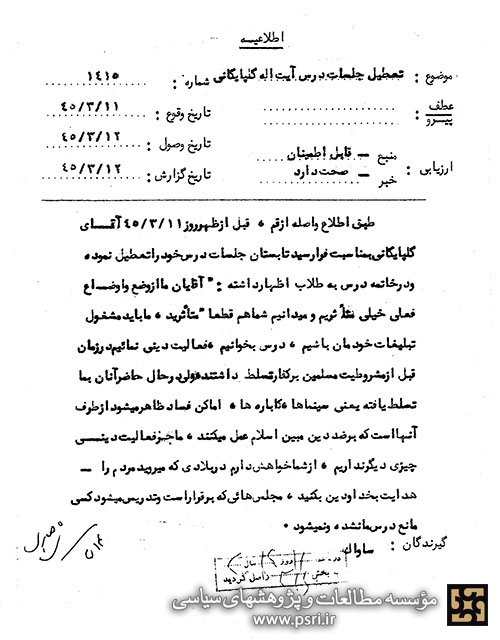 اطلاعیــه
موضوع : تعطیل جلسات درس آیت اله گلپایگانی شماره : ۱۴۱۵
عطف : تاریخ وقوع : ۴۵/۳/۱۱
پیرو : تاریخ وصول : ۴۵/۳/۱۲
ارزیابی : منبع - قابل اطمینان تاریخ گزارش : ۴۵/۳/۱۲
خبر - صحت دارد
طبق اطلاع واصله ازقم ، قبل ازظهر روز ۴۵/۳/۱۱ آقــای
گلپایگانی بمناسبت فرارسید تابستان جلسات درس خود راتعطیل نموده
ودرخاتمه درس به طلاب اظهارداشته : "آقایان ما ازوضع واوضــاع
فعلی خیلی متأثریم و میدانیم شماهم قطعا" متأثرید ، ماباید مشغول
تبلیغات خودمان باشیم ، درس بخوانیم ، فعالیت دینی نمائیم درزمان
قبل ازمشروطیت مسلمین برکفارتسلط داشتند ولی درحال حاضرآنان بما
تسلط یافته یعنی سینماها ، کاباره ها ، اماکن فساد ظاهرمیشود ازطرف
آنهااست که برضد دین مبین اسلام عمل میکنند ، ماجزفعالیت دینــی
چیزی دیگرنداریم ، ازشماخواهش دارم دربلادی که میروید مردم را —
هدایت بخداودین بکنید ، مجلس هائی که برقراراست وتدریس میشود کسی
مانع درس مانشده ونمیشود .
گیرندگان : ساواک
بخش
واصل گردید
مؤسسه مطالعات و پژوهشهای سیاسی
www.psri.ir